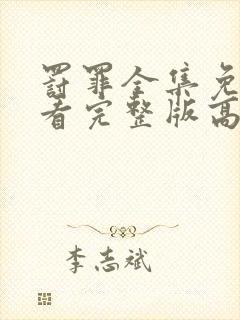 罸罪全集免
看完整版高
李志斌